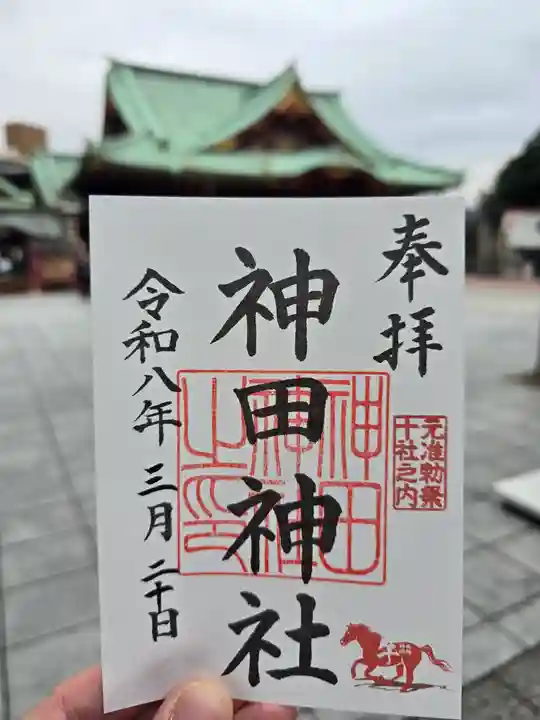 奉拝
元准勅祭
十社之内
神田神社
神田神社之印
令和八年三月二十日